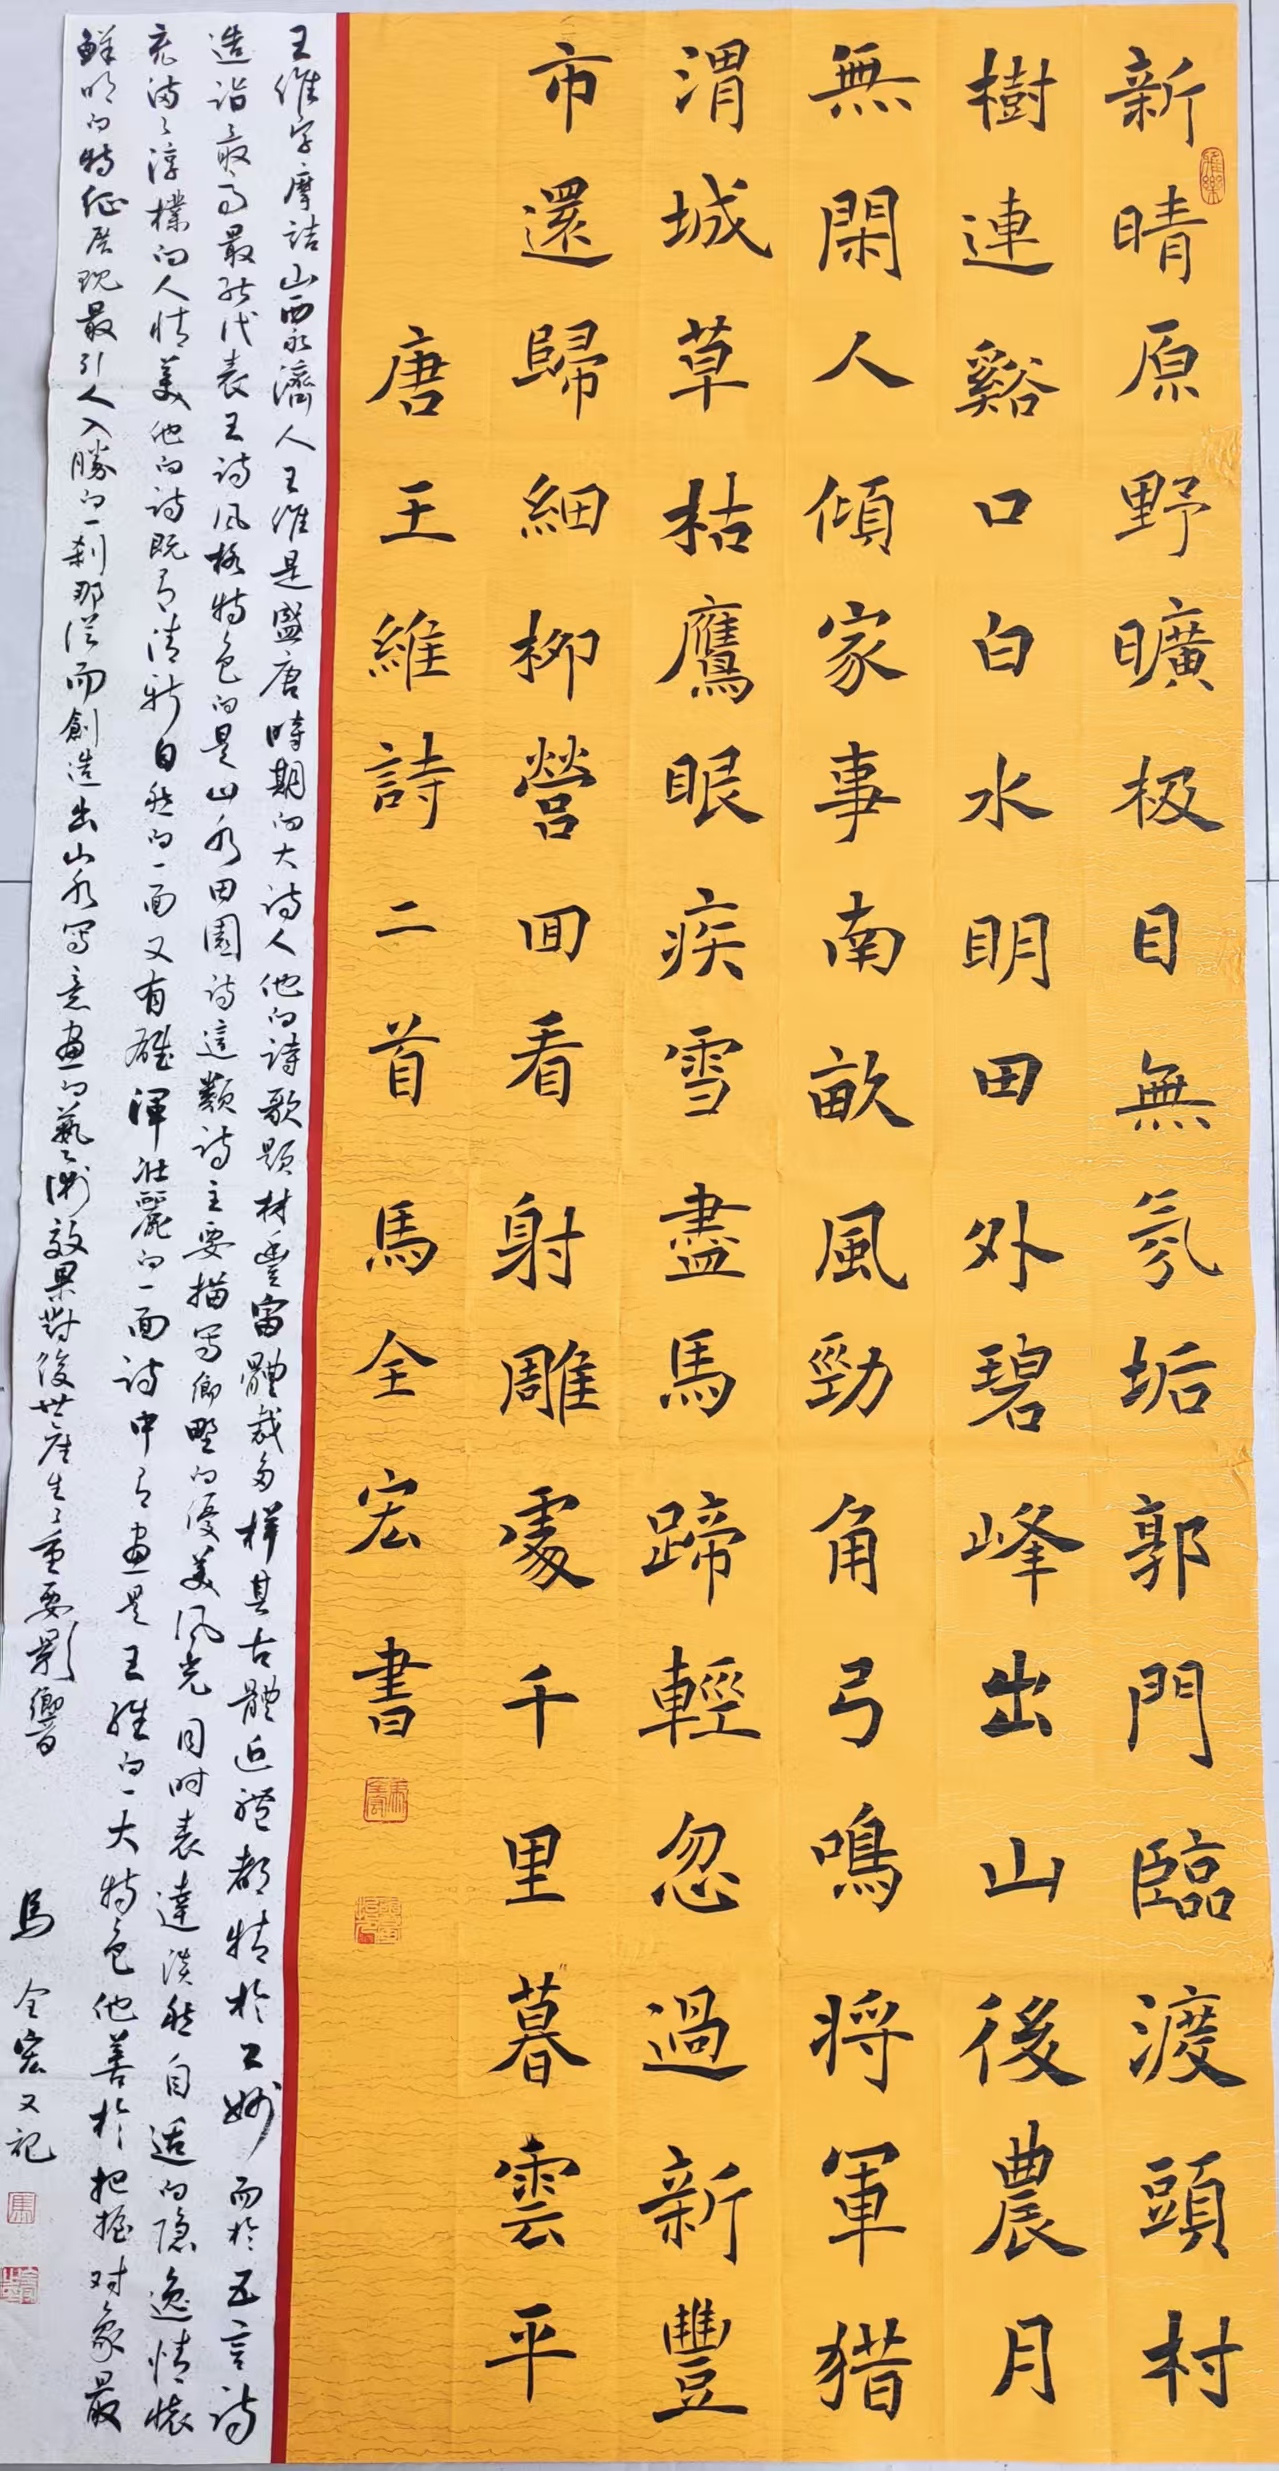 新晴原野曠极目無氛垢郭門臨渡頭村
樹連谿口白水明田外碧峰出山後農月
無閑人傾家事南畝風勁角弓鳴将軍猎
渭城草枯鷹眼疾雪盡馬蹄輕忽過新豐
市還歸細柳營回看射雕處千里暮雲平
唐王維詩二首馬全宏書
王維字摩詰山西永濟人王維是盛唐時期的大诗人他的诗歌题材豐富體裁多样其古體近體都精於工妙而於五言诗
造诣最高最能代表王诗风格特色的是山水田園诗這類诗主要描写鄉野的優美风光同时表達淡然自适的隐逸情懷
充满淳樸的人情美他的诗既有清新自然的一面又有雄渾壯麗的一面诗中有画是王維的一大特色他善於把握对象最
鲜明的特征展现最引人入勝的一刹那从而創造出山水写意画的藝術效果對後世产生重要影響
馬全宏又记